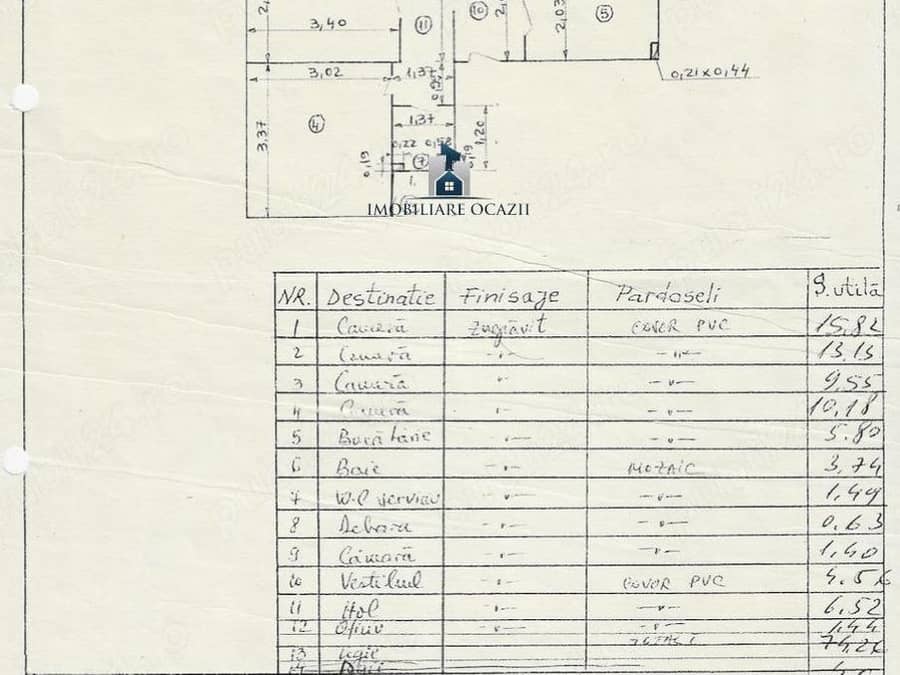 3,40
11
10
5
3,02
1,37
0,21x0,44
4
3,37
1,37
1,20
0,22
0,19
0,19
7
IMOBILIARE OCAZII
NR. Destinatie Finisaje Pardoseli S.utilă
1 Cameră Zugrăvit COVOR PVC 15.82
2 Cameră -"- -"- 13.13
3 Cameră -"- -"- 9.55
4 Cameră -"- -"- 10,18
5 Bucătărie -"- -"- 5.80
6 Baie -"- MOZAIC 3,74
7 W.C serviciu -"- -"- 1,49
8 Debara -"- -"- 0,63
9 Cămară -"- -"- 1,40
10 Vestibul -"- COVOR PVC 4.56
11 Hol -"- -"- 6,52
12 Oficiu -"- 1,44
74,26
13
14